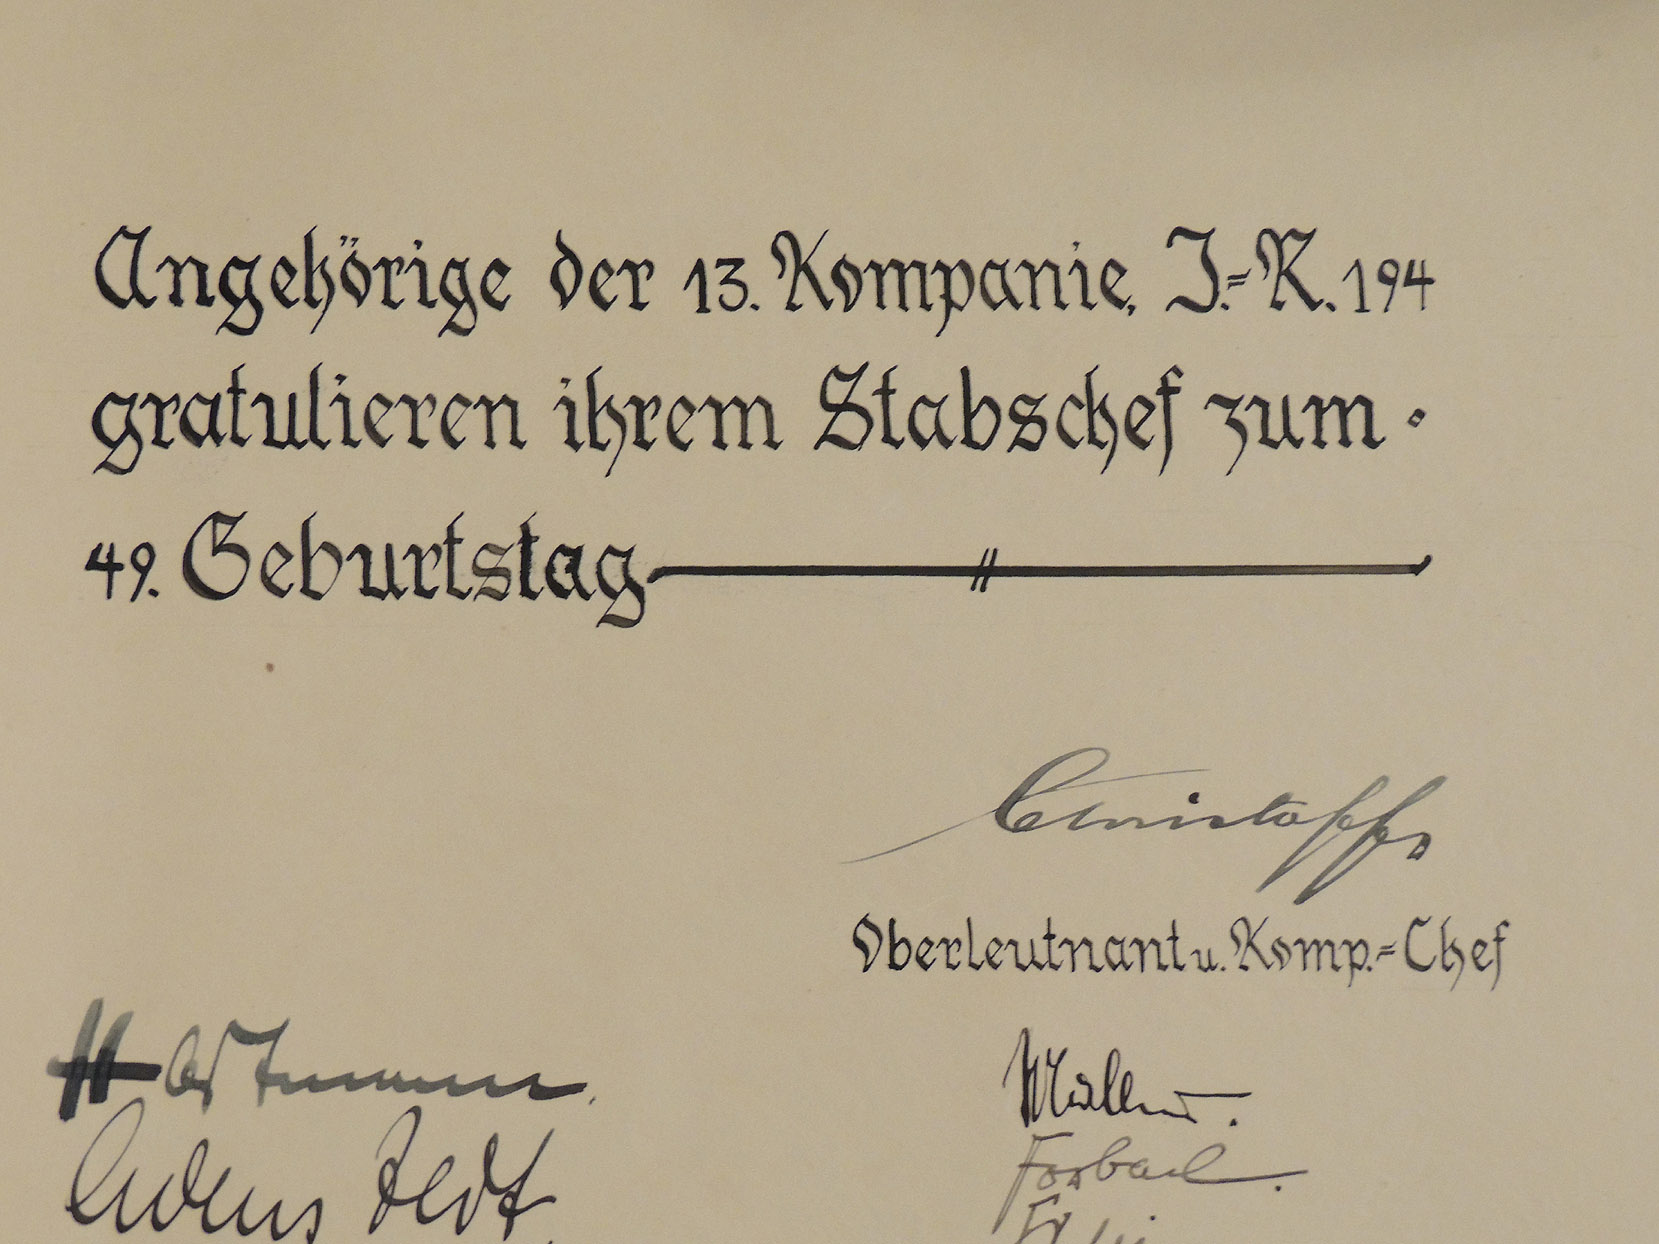 Angehörige der 13. Kompanie, J.=R. 194
gratulieren ihrem Stabschef zum
49. Geburtstag
Christoffs
Oberleutnant u. Komp.=Chef
Müller.
Forbach.